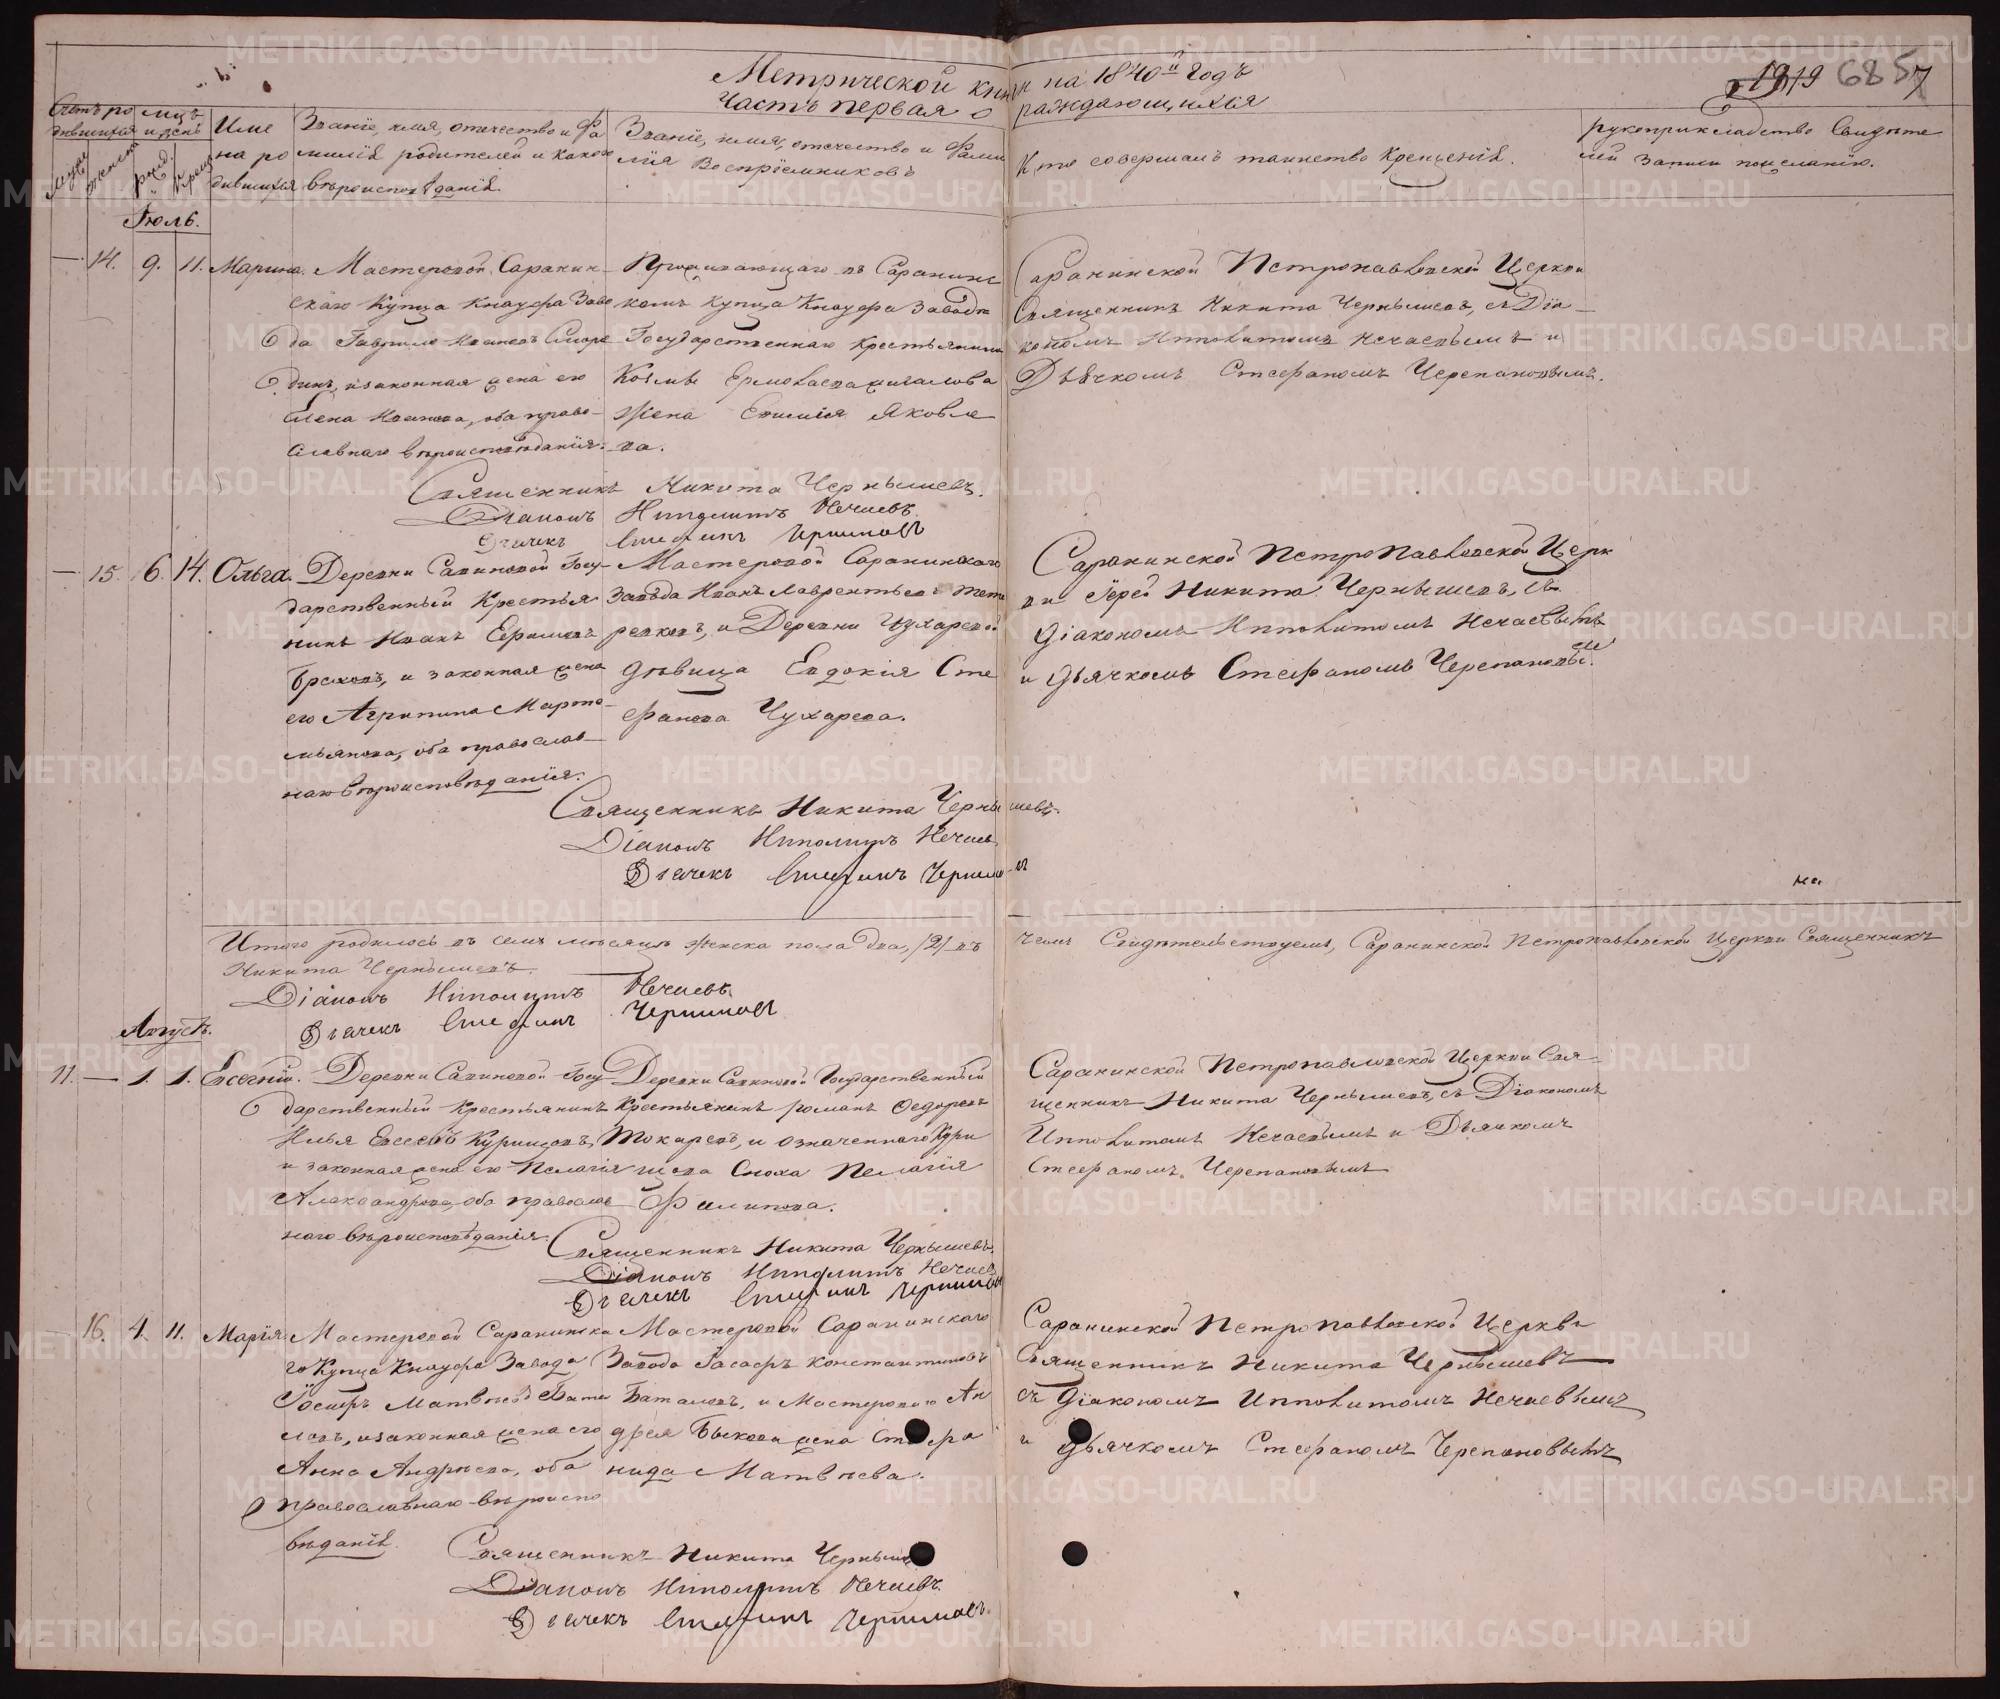 Метрической книги на 1840й Годъ
Часть первая о раждающихся
1919 685 7
Счетъ родившихся
мцъ и день
Имена родившихся
Званіе, имя, отечество и фамилія родителей и какого вѣроисповѣданія.
Званіе, имя, отечество и фамилія Воспріемниковъ
Кто совершалъ таинство Крещенія.
рукоприкладство Свидѣтелей записи по желанію.
Іюль.
— 14. 9. 11. Марина.
Мастеровой Саранин-
скаго Купца Кнауфа Заво
да Гаврило Ивановъ Сморо
динъ, и законная жена его
Елена Иванова, оба право-
славнаго вѣроисповѣданія.
Проживающаго въ Саранинс
комъ Купца Кнауфа Заводѣ
Государственнаго Крестьянина
Козмы Ермолаева
жена Евимія Яковле
ва.
Саранинской Петропавловской Церкви
Священникъ Никита Чернышевъ, съ Діа-
кономъ Ипполитомъ Нечаевымъ и
Дьячкомъ Стефаномъ Черепановымъ.
Священникъ Никита Чернышевъ.
Діаконъ Ипполитъ Нечаевъ
Дьячекъ Стефанъ Черепановъ
— 15. 6. 14. Ольга.
Деревни Савиновой Госу-
дарственный Крестья
нинъ Иванъ Ефимовъ
, и законная жена
его Агрипина Марто-
мьянова, оба православ-
наго вѣроисповѣданія.
Мастеровой Саранинскаго
Завода Иванъ Лаврентьевъ Тете
ревковъ, и Деревни Чухаревой
дѣвица Евдокія Сте
фанова Чухарева.
Саранинской Петропавловской Церк
ви Іерей Никита Чернышевъ, съ
Діакономъ Ипполитомъ Нечаевымъ
и Дьячкомъ Стефаномъ Черепановымъ.
Священникъ Никита Чернышевъ.
Діаконъ Ипполитъ Нечаев
Дьячекъ Стефанъ Черепановъ
Итого родилось въ семъ мѣсяцѣ женска пола два, /2/ въ чемъ Свидѣтельствуемъ, Саранинской Петропавловской Церкви Священникъ
Никита Чернышевъ.
Діаконъ Ипполитъ Нечаевъ
Дьячекъ Стефанъ Черепановъ
Августъ.
11. — 1. 1. Евсегній.
Деревни Савиновой Госу-
дарственный Крестьянинъ
Илья Евсеевъ Курищовъ,
и законная жена его Пелагія
Александрова, оба православ
наго вѣроисповѣданія.
Деревни Савиновой Государственный
Крестьянинъ романъ Ѳедоровъ
Токаревъ, и означеннаго Кури
щова Сноха Пелагія
Филипова.
Саранинской Петропавловской Церкви Свя-
щенникъ Никита Чернышевъ, съ Діакономъ
Ипполитомъ Нечаевымъ и Дьячкомъ
Стефаномъ Черепановымъ
Священникъ Никита Чернышевъ.
Діаконъ Ипполитъ Нечаев
Дьячекъ Стефанъ Черепановъ
16. 4. 11. Марія.
Мастеровой Саранинска
го Купца Кнауфа Завода
Іосифъ Матвѣевъ Бата
ловъ, и законная жена его
Анна Андрѣева, оба
православнаго вѣроиспо
вѣданія.
Мастеровой Саранинскаго
Завода Іасафъ Константиновъ
Баталовъ, и Мастероваго Ан
дрея Быкова жена Стефа
нида Матвѣева.
Саранинской Петропавловской Церкви
Священникъ Никита Чернышевъ
съ Діакономъ Ипполитомъ Нечаевымъ
и Дьячкомъ Стефаномъ Черепановымъ
Священникъ Никита Черныш
Діаконъ Ипполитъ Нечаевъ.
Дьячекъ Стефанъ Черепановъ.
METRIKI.GASO-URAL.RU